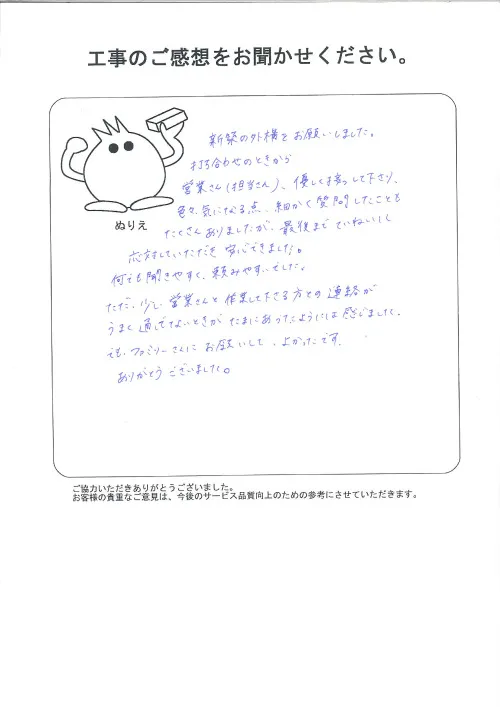 工事のご感想をお聞かせください。
新築の外構をお願いしました。
打ち合わせのときから
営業さん(担当さん)、優しく接して下さり、
色々、気になる点、細かく質問したことも
たくさんありましたが、最後までていねいに
ぬりえ
応対していただき 安心できました。
何でも聞きやすく、頼みやすいでした。
ただ、少し、営業さんと作業して下さる方との連絡が
うまく通じてないときが たまにあったようには感じました。
でも、ファミリーさんに お願いして、よかったです。
ありがとうございました。
ご協力いただきありがとうございました。
お客様の貴重なご意見は、今後のサービス品質向上のための参考にさせていただきます。